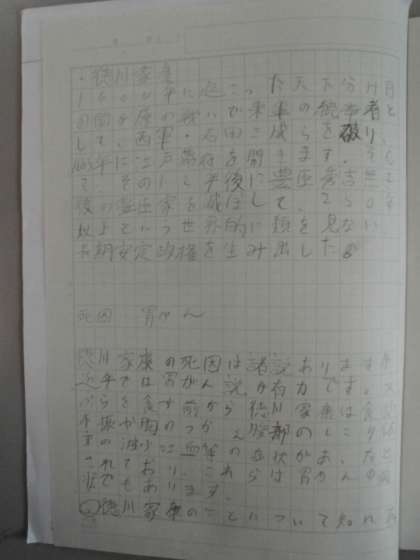 ・徳川家康
1600年に起こった天下分け目
の関が原の戦いで東軍の統率者と
して、西軍・石田三成らを破り、
年に江戸幕府を開きます。そし
て、その 年後に豊臣秀吉
後の豊臣家を滅ぼして、260年
以上という世界的に類を見ない
長期安定政権を生み出した。
死因 胃がん
徳川家康の死因は諸説あります
近年では胃がん説が有力です。
ぷらを食す前から徳川家康は食
不振や胸のつかえ、腹部のしこり
の減少、血 の症状があ
れており、これらは胃がんの
でもあります。
徳川家康のことについて知れ